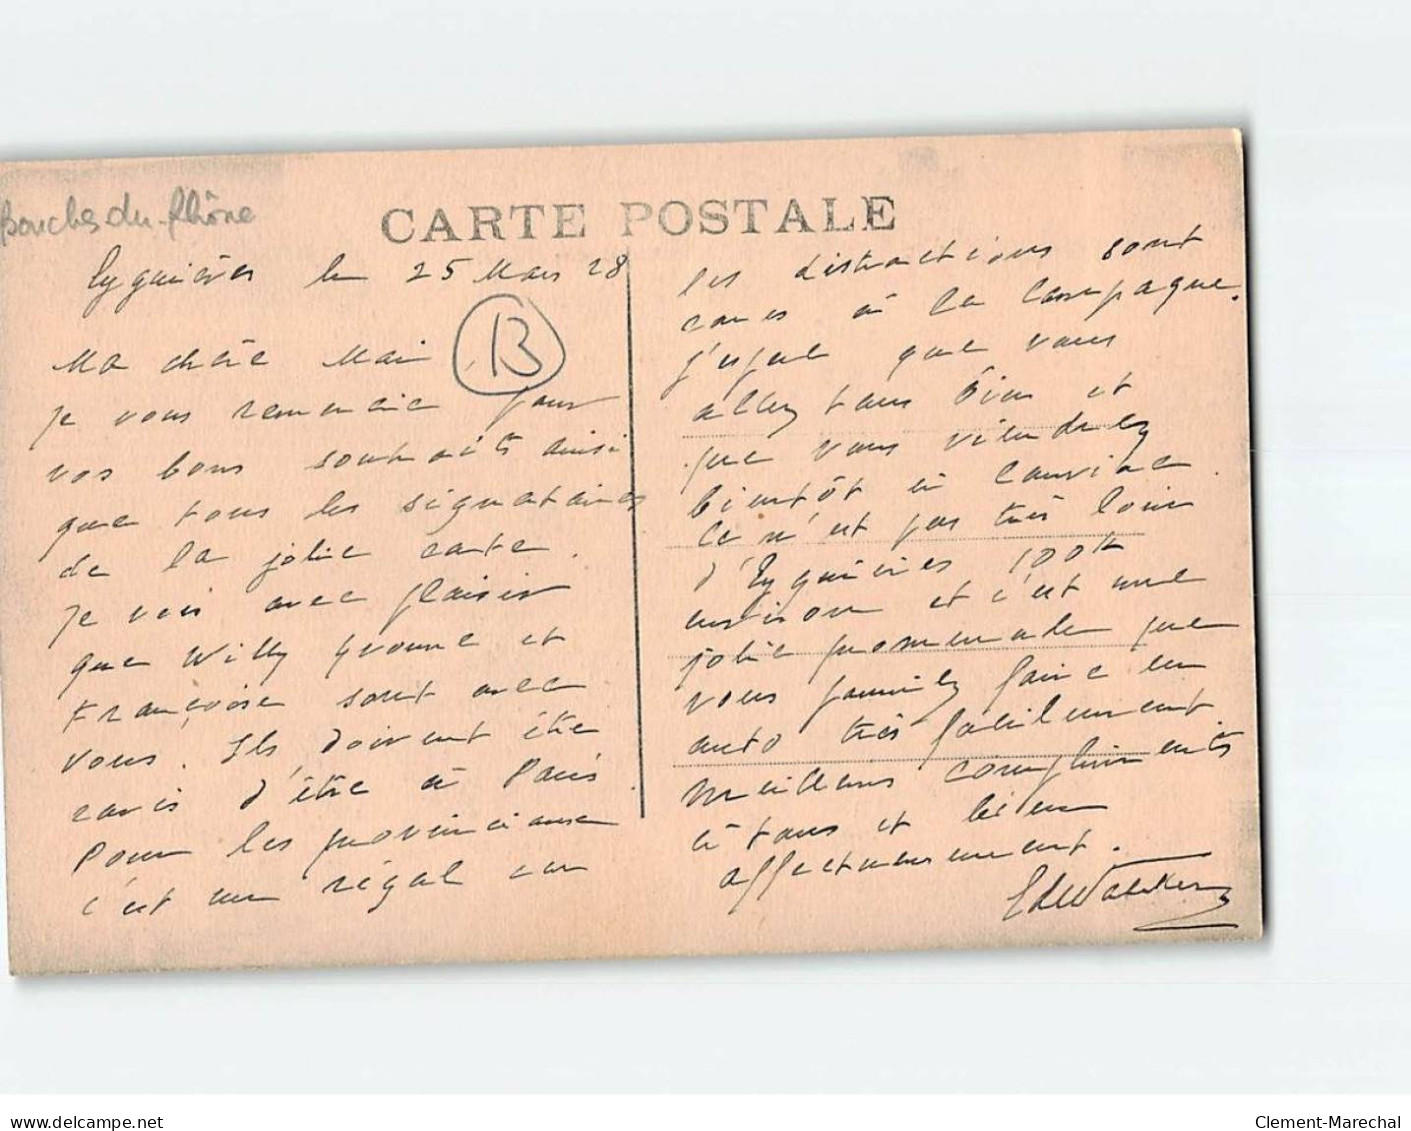 Bouches du-Rhône
CARTE POSTALE
Eyguières le 25 Mars 28
Ma chère
B
je vous remercie pour
vos bons souhaits ainsi
que tous les signataires
de la jolie carte.
Je vois avec plaisir
que Willy Yvonne et
Françoise sont avec
vous. Ils doivent être
ravis d'être à Paris.
Pour les provinciaux
c'est un régal car
les distractions sont
rares à la campagne.
J'espère que vous
allez tous bien et
que vous viendrez
bientôt en
Ce n'est pas très loin
d'Eyguières 100 k
environ et c'est une
jolie promenade que
vous pourriez faire en
auto très facilement.
Meilleurs compliments
à tous et bien
affectueusement.
Clement-Marechal
www.delcampe.net